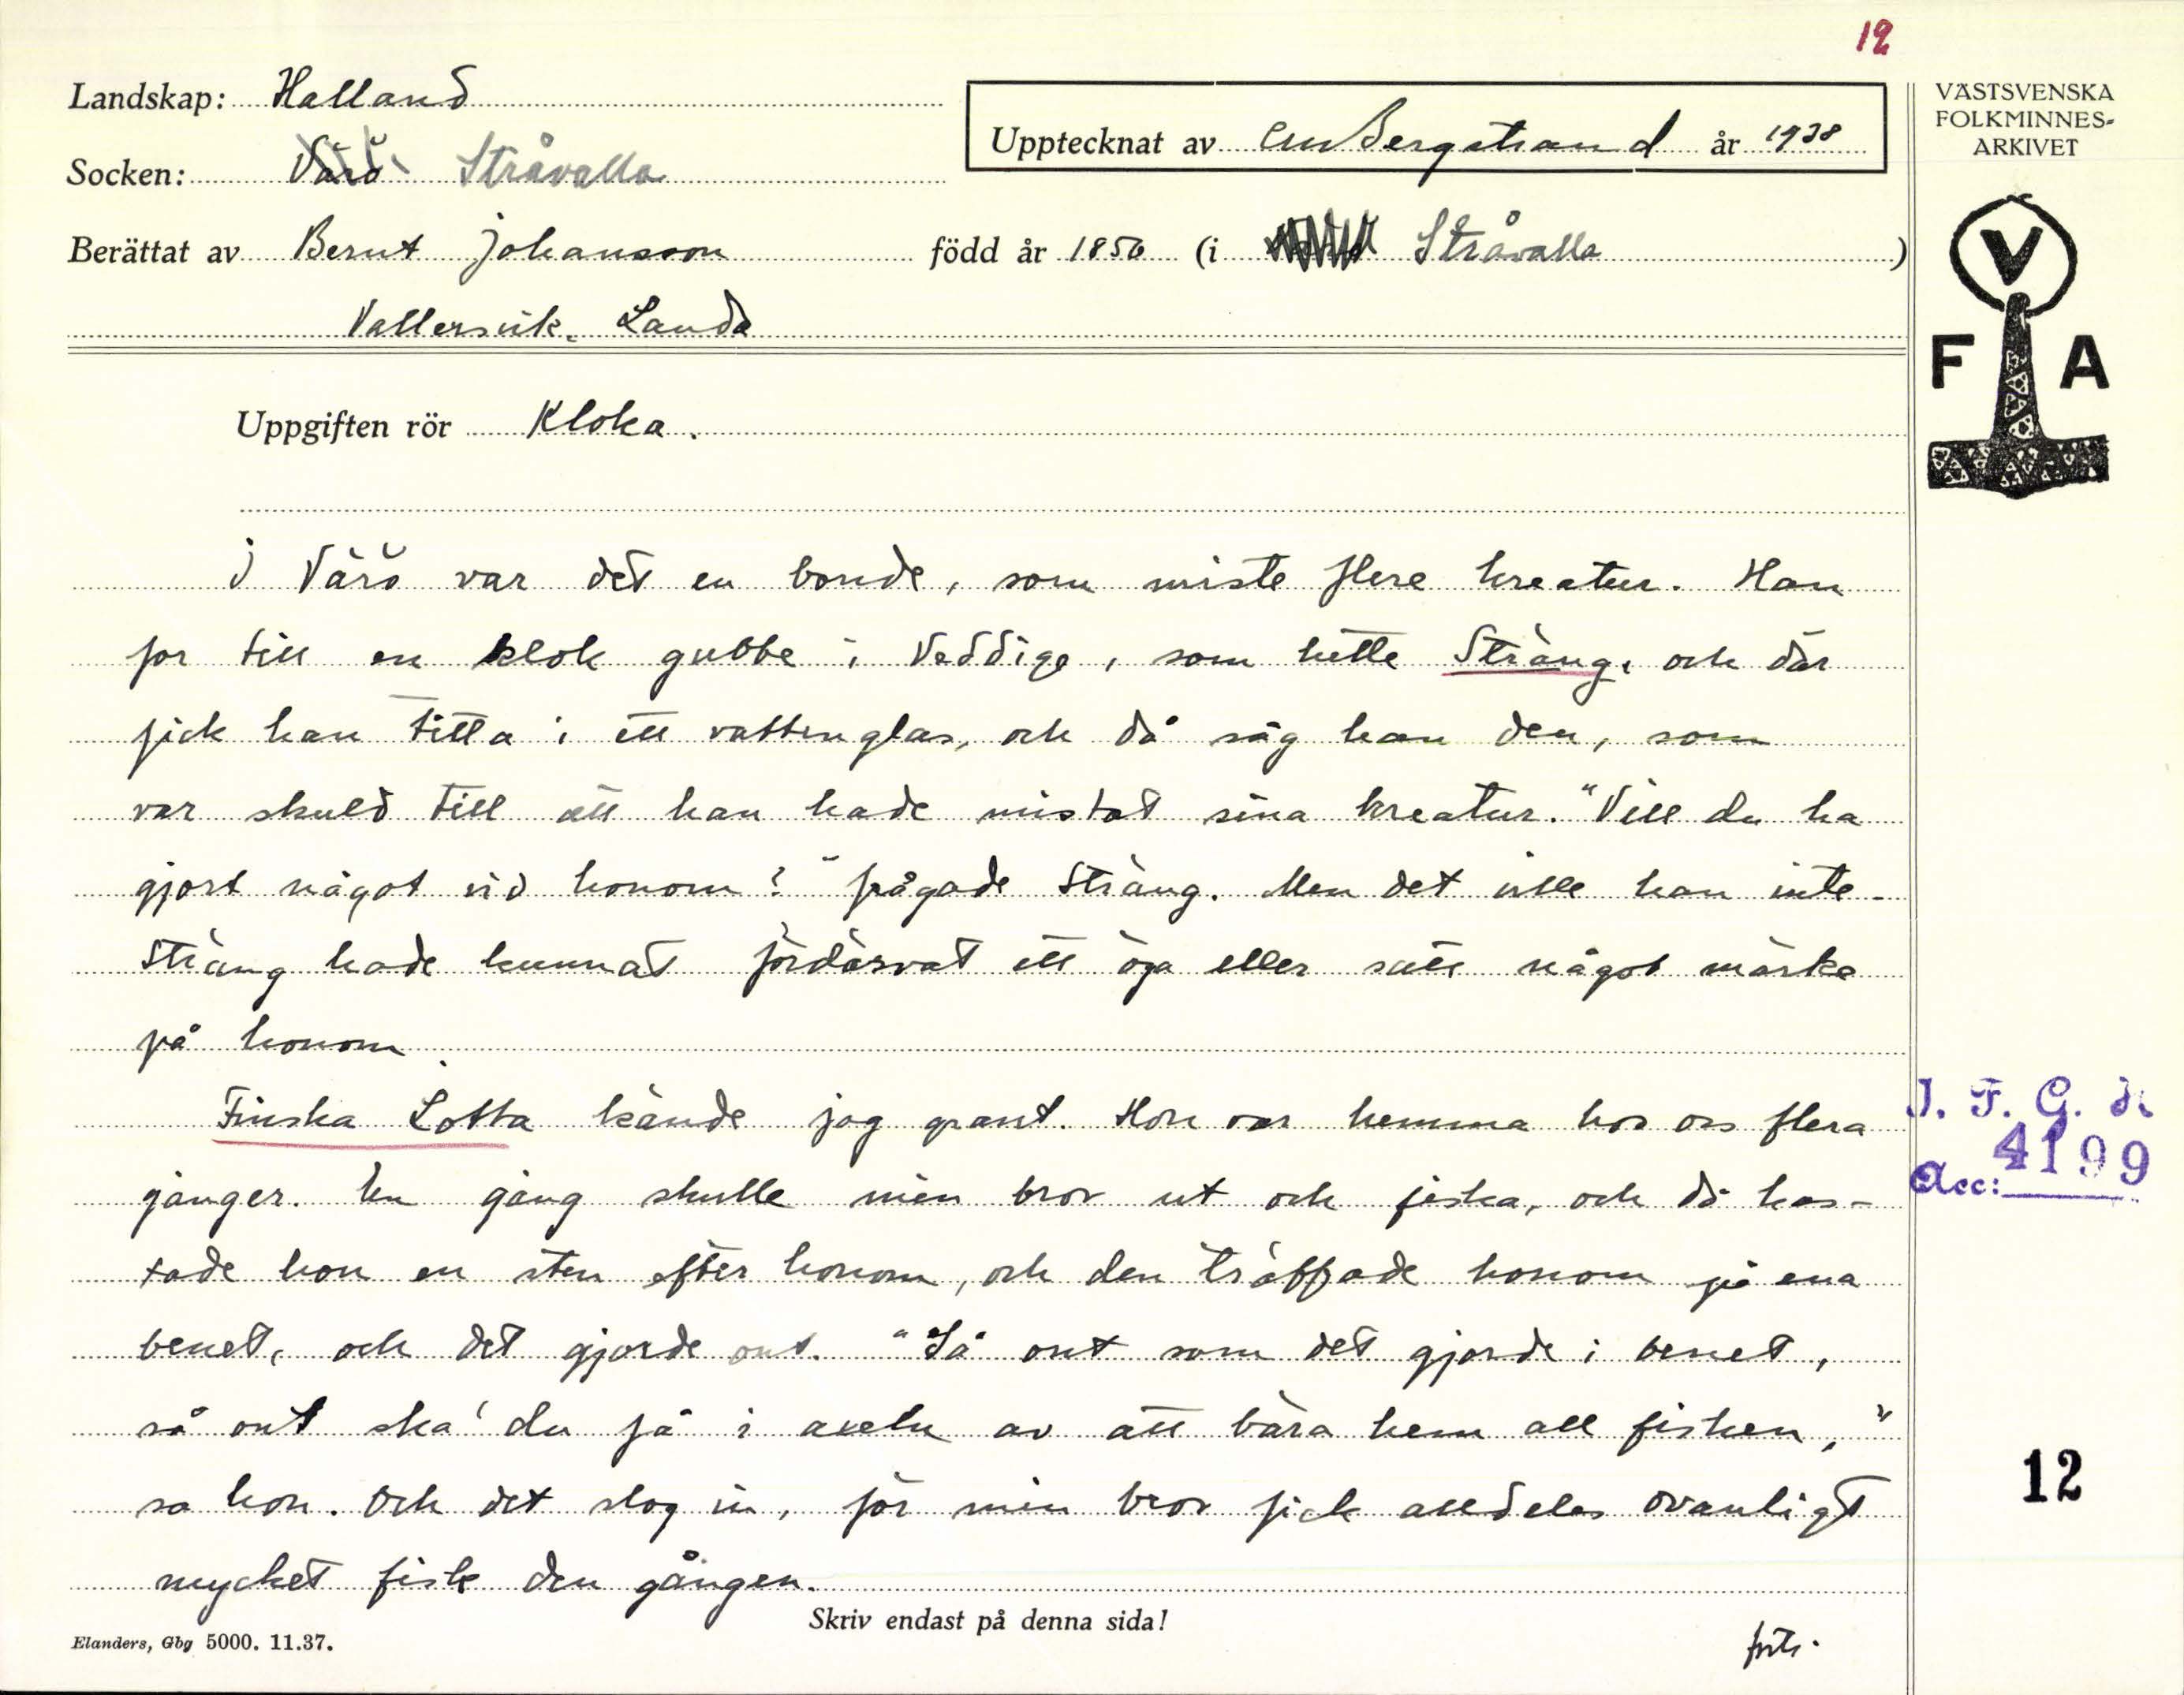 12
Landskap: Halland
Socken: Värö Stråvalla
Upptecknat av CM Bergstrand år 1938
VÄSTSVENSKA
FOLKMINNES-
ARKIVET
Berättat av Bernt Johansson född år 1856 (i Stråvalla)
Vallersvik, Landa
V
F A
Uppgiften rör Kloka.
I Värö var det en bonde, som miste flere kreatur. Han
for till en klok gubbe i Veddige, som hette Sträng, och där
fick han titta i ett vattenglas, och då såg han den, som
var skuld till att han hade mistat sina kreatur. "Vill du ha
gjort något vid honom?" frågade Sträng. Men det ville han inte.
Sträng hade kunnat fördärvat ett öga eller satt något märke
på honom.
Finska Lotta kände jag grant. Hon var hemma hos oss flera
gånger. En gång skulle min bror ut och fiska, och då kas-
tade hon en sten efter honom, och den träffade honom på ena
benet, och det gjorde ont. "Så ont som det gjorde i benet,
så ont ska' du få i axeln av att bära hem all fisken,"
sa hon. Och det slog in, för min bror fick alldeles ovanligt
mycket fisk den gången.
I. F. G. H.
Acc: 4199
12
Skriv endast på denna sida!
Elanders, Gbg 5000. 11.37.
forts.